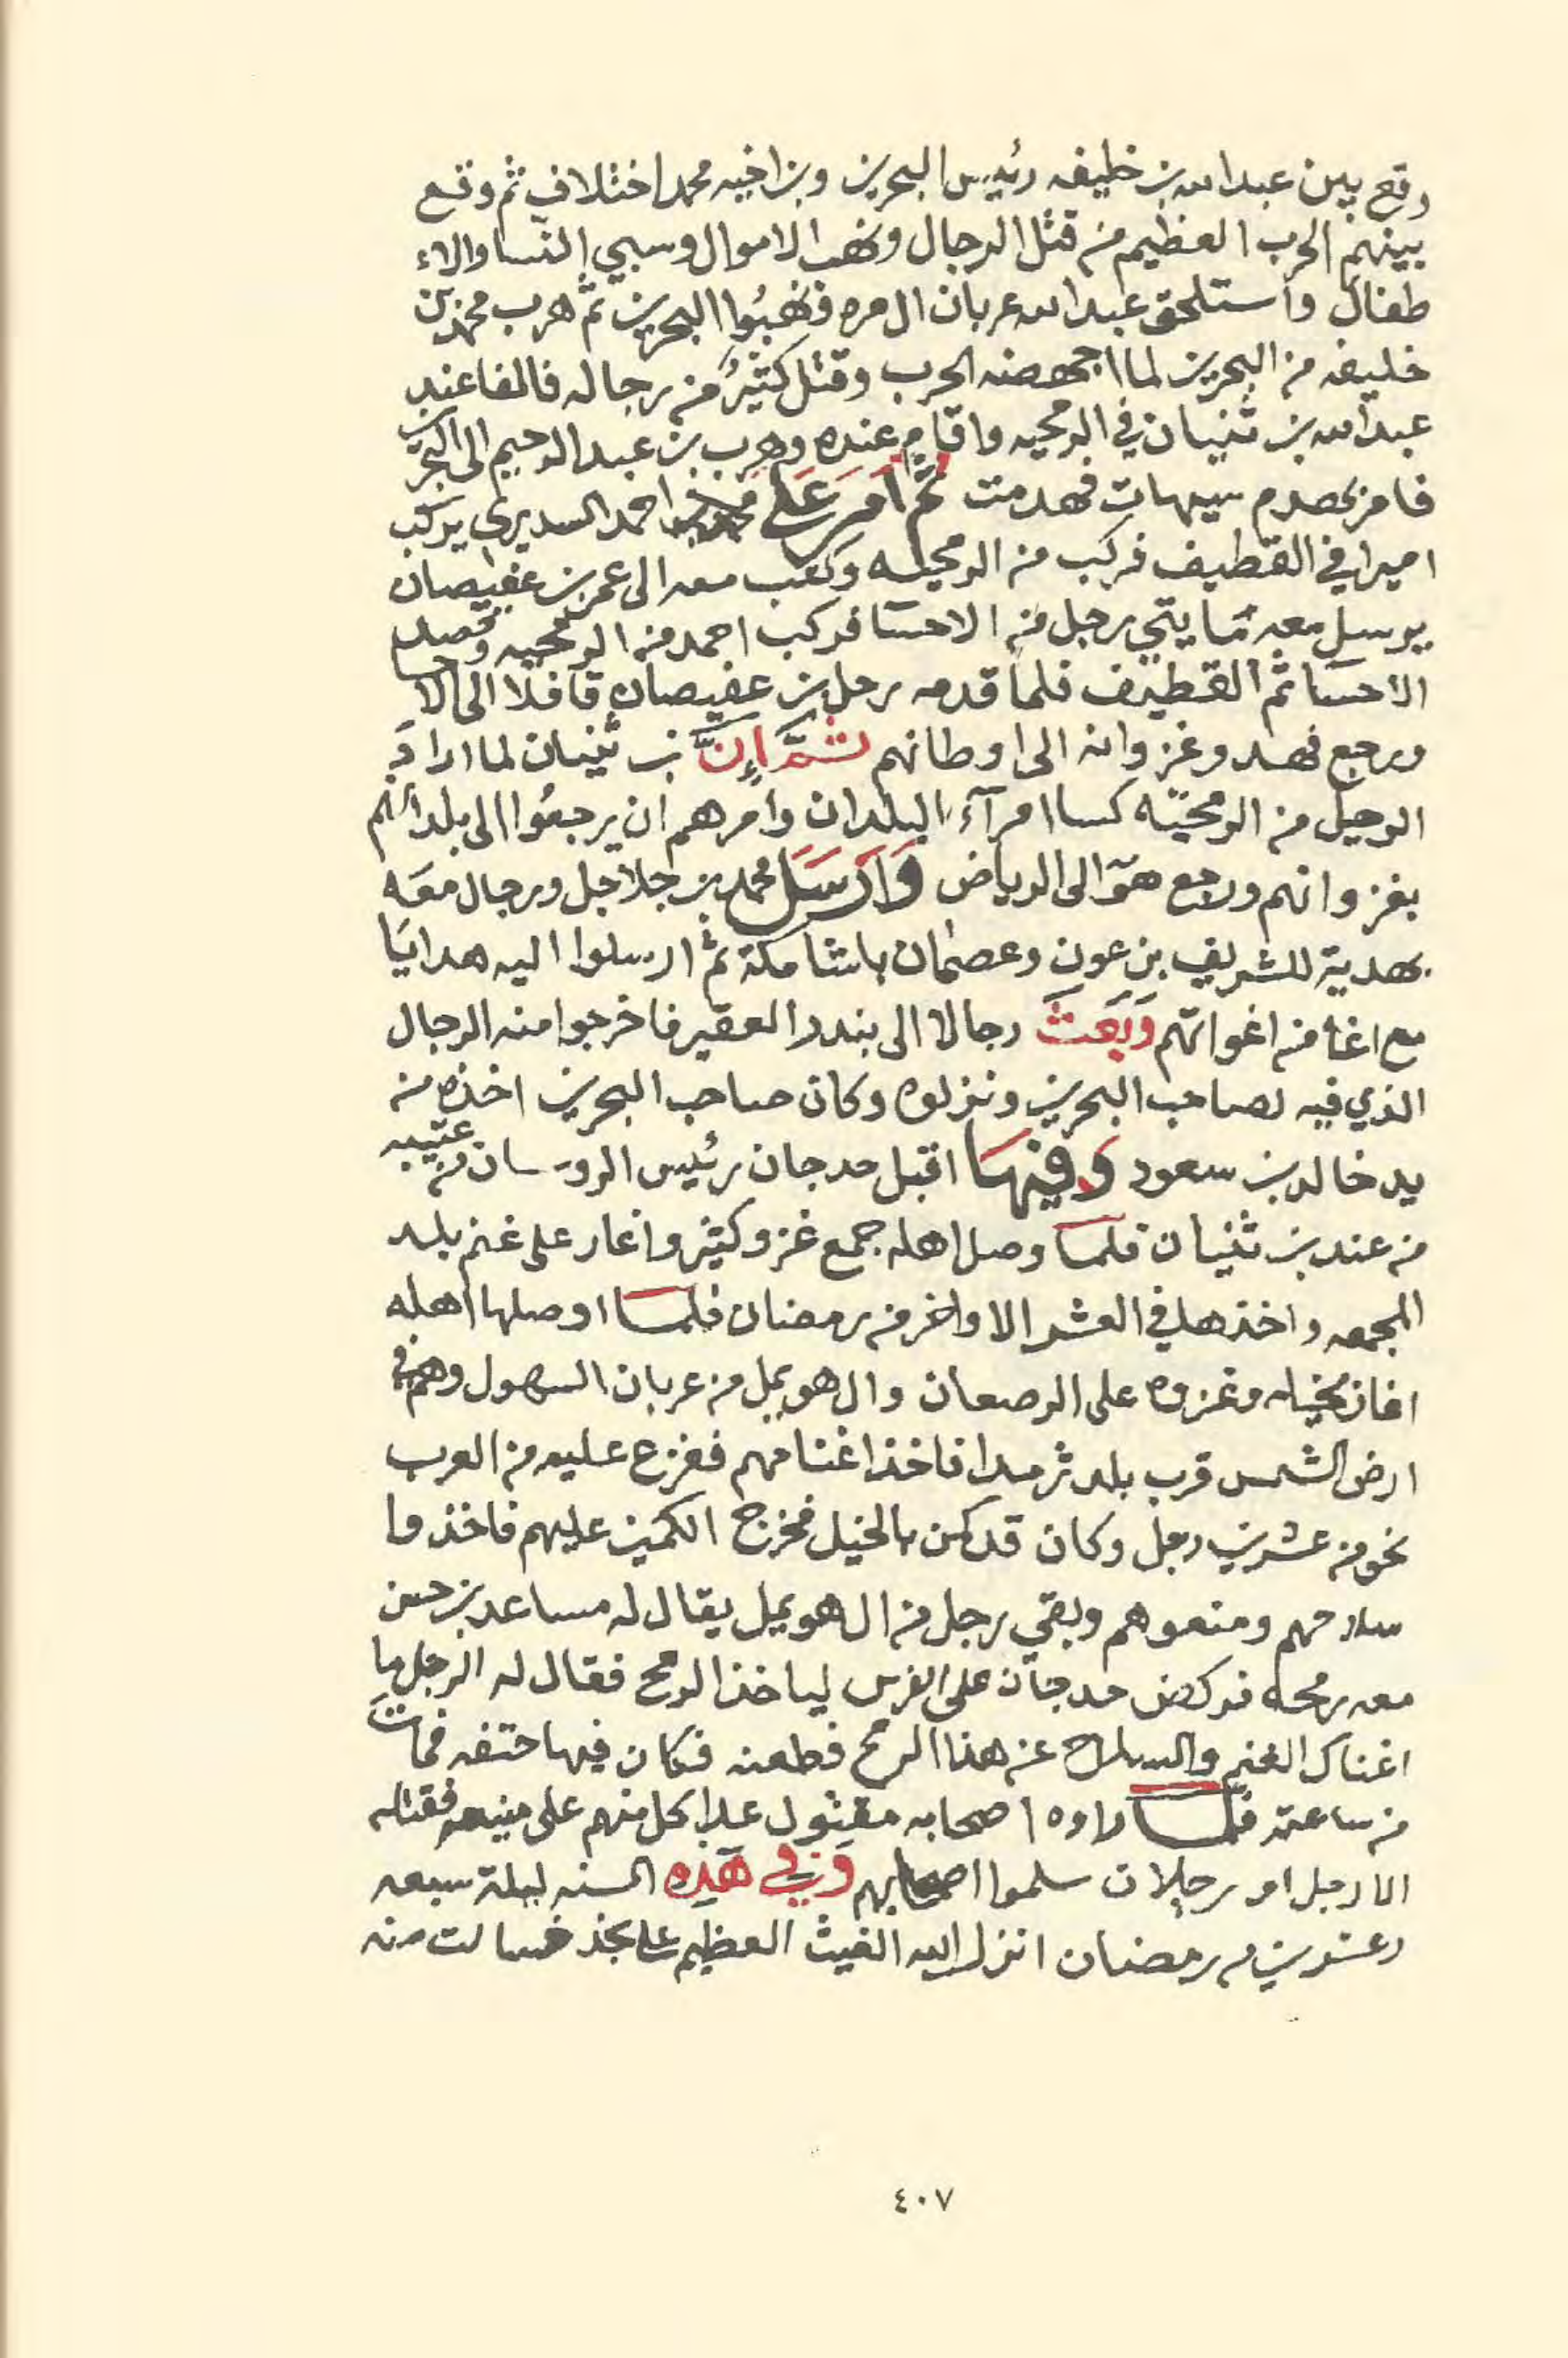 وقع بين عبدالله بن خليفه رئيس البحرين وبن اخيه محمد اختلاف ثم وقع
بينهم الحرب العظيم من قتل الرجال ونهب الاموال وسبي النسا والاء
طفال واستلحق عبدالله عربان ال مره فنهبُوا البحرين ثم هرب محمد بن
خليفه من البحرين لما اجهضته الحرب وقتل كثيرٌ من رجاله فالفا عند
عبدالله بن ثنيان في الرمحيه واقام عنده وهرب بن عبدالرحيم الى البحرين
فامر بهدم سيهات فهدمت ثُمَّ اَمَرَ عَلَى احمد السديري يركب
اميرا في القطيف فركب من الرمحيه وكتب معه الى عمر بن عفيصان
يرسل معه مايتي رجل من الاحسا فركب احمد من الرمحيه وقصد
الاحسا ثم القطيف فلما قدمه رحل بن عفيصان قافلا الى الاحسا
ورجع فهد وغزوانه الى اوطانهم ثُمَّ اِنَّ بن ثنيان لما اراد
الرحيل من الرمحيّه كسا امرآء البلدان وامرهم ان يرجعُوا الى بلدانهم
بغزوانهم ورجع هوَ الى الرياض وَاَرسَلَ محمد بن جلاجل ورجال معَه
بهدية للشريف بن عون وعصمان باشا مكة ثم ارسلوا اليه هدايَا
مع اغا من اغواتهم وَبَعَثَ رجالا الى بندر العقير فاخرجوا منه الرجال
الذي فيه لصاحب البحرين ونزلوه وكان صاحب البحرين اخذه من
يد خالد بن سعود وَفِيهَا اقبل حدجان رئيس الروسان من عتيبه
من عند بن ثنيان فلما وصل اهله جمع غزو كثير واغار على غنم بلد
المجمعه واخذها في العشر الاواخر من رمضان فلما اوصلها اهله
اغار بخيله وغزوه على الرصعان وال هويمل من عربان السهول وهم في
ارض الشمس قرب بلد ثرمدا فاخذ اغنامهم ففزع عليه من العرب
نحو من عشرين رجل وكان قد كمن بالخيل فخرج الكمين عليهم فاخذوا
سلاحهم ومنعوهم وبقي رجل من ال هويمل يقال له مساعد بن حسن
معه رمحه فركض حدجان على الفرس لياخذ الرمح فقال له الرجل ما
اغناك الغنم والسلاح عن هذا الرمح فطعنه فكان فيها حتفه فمات
من ساعته فلما راوه اصحابه مقتول عدا كل منهم على منيعه فقتله
الا رجل او رجلان سلموا اصحابهم وَفِي هَذِه السنه ليلة سبعه
وعشرين من رمضان انزل الله الغيث العظيم على نجد فسالت منه
٤٠٧